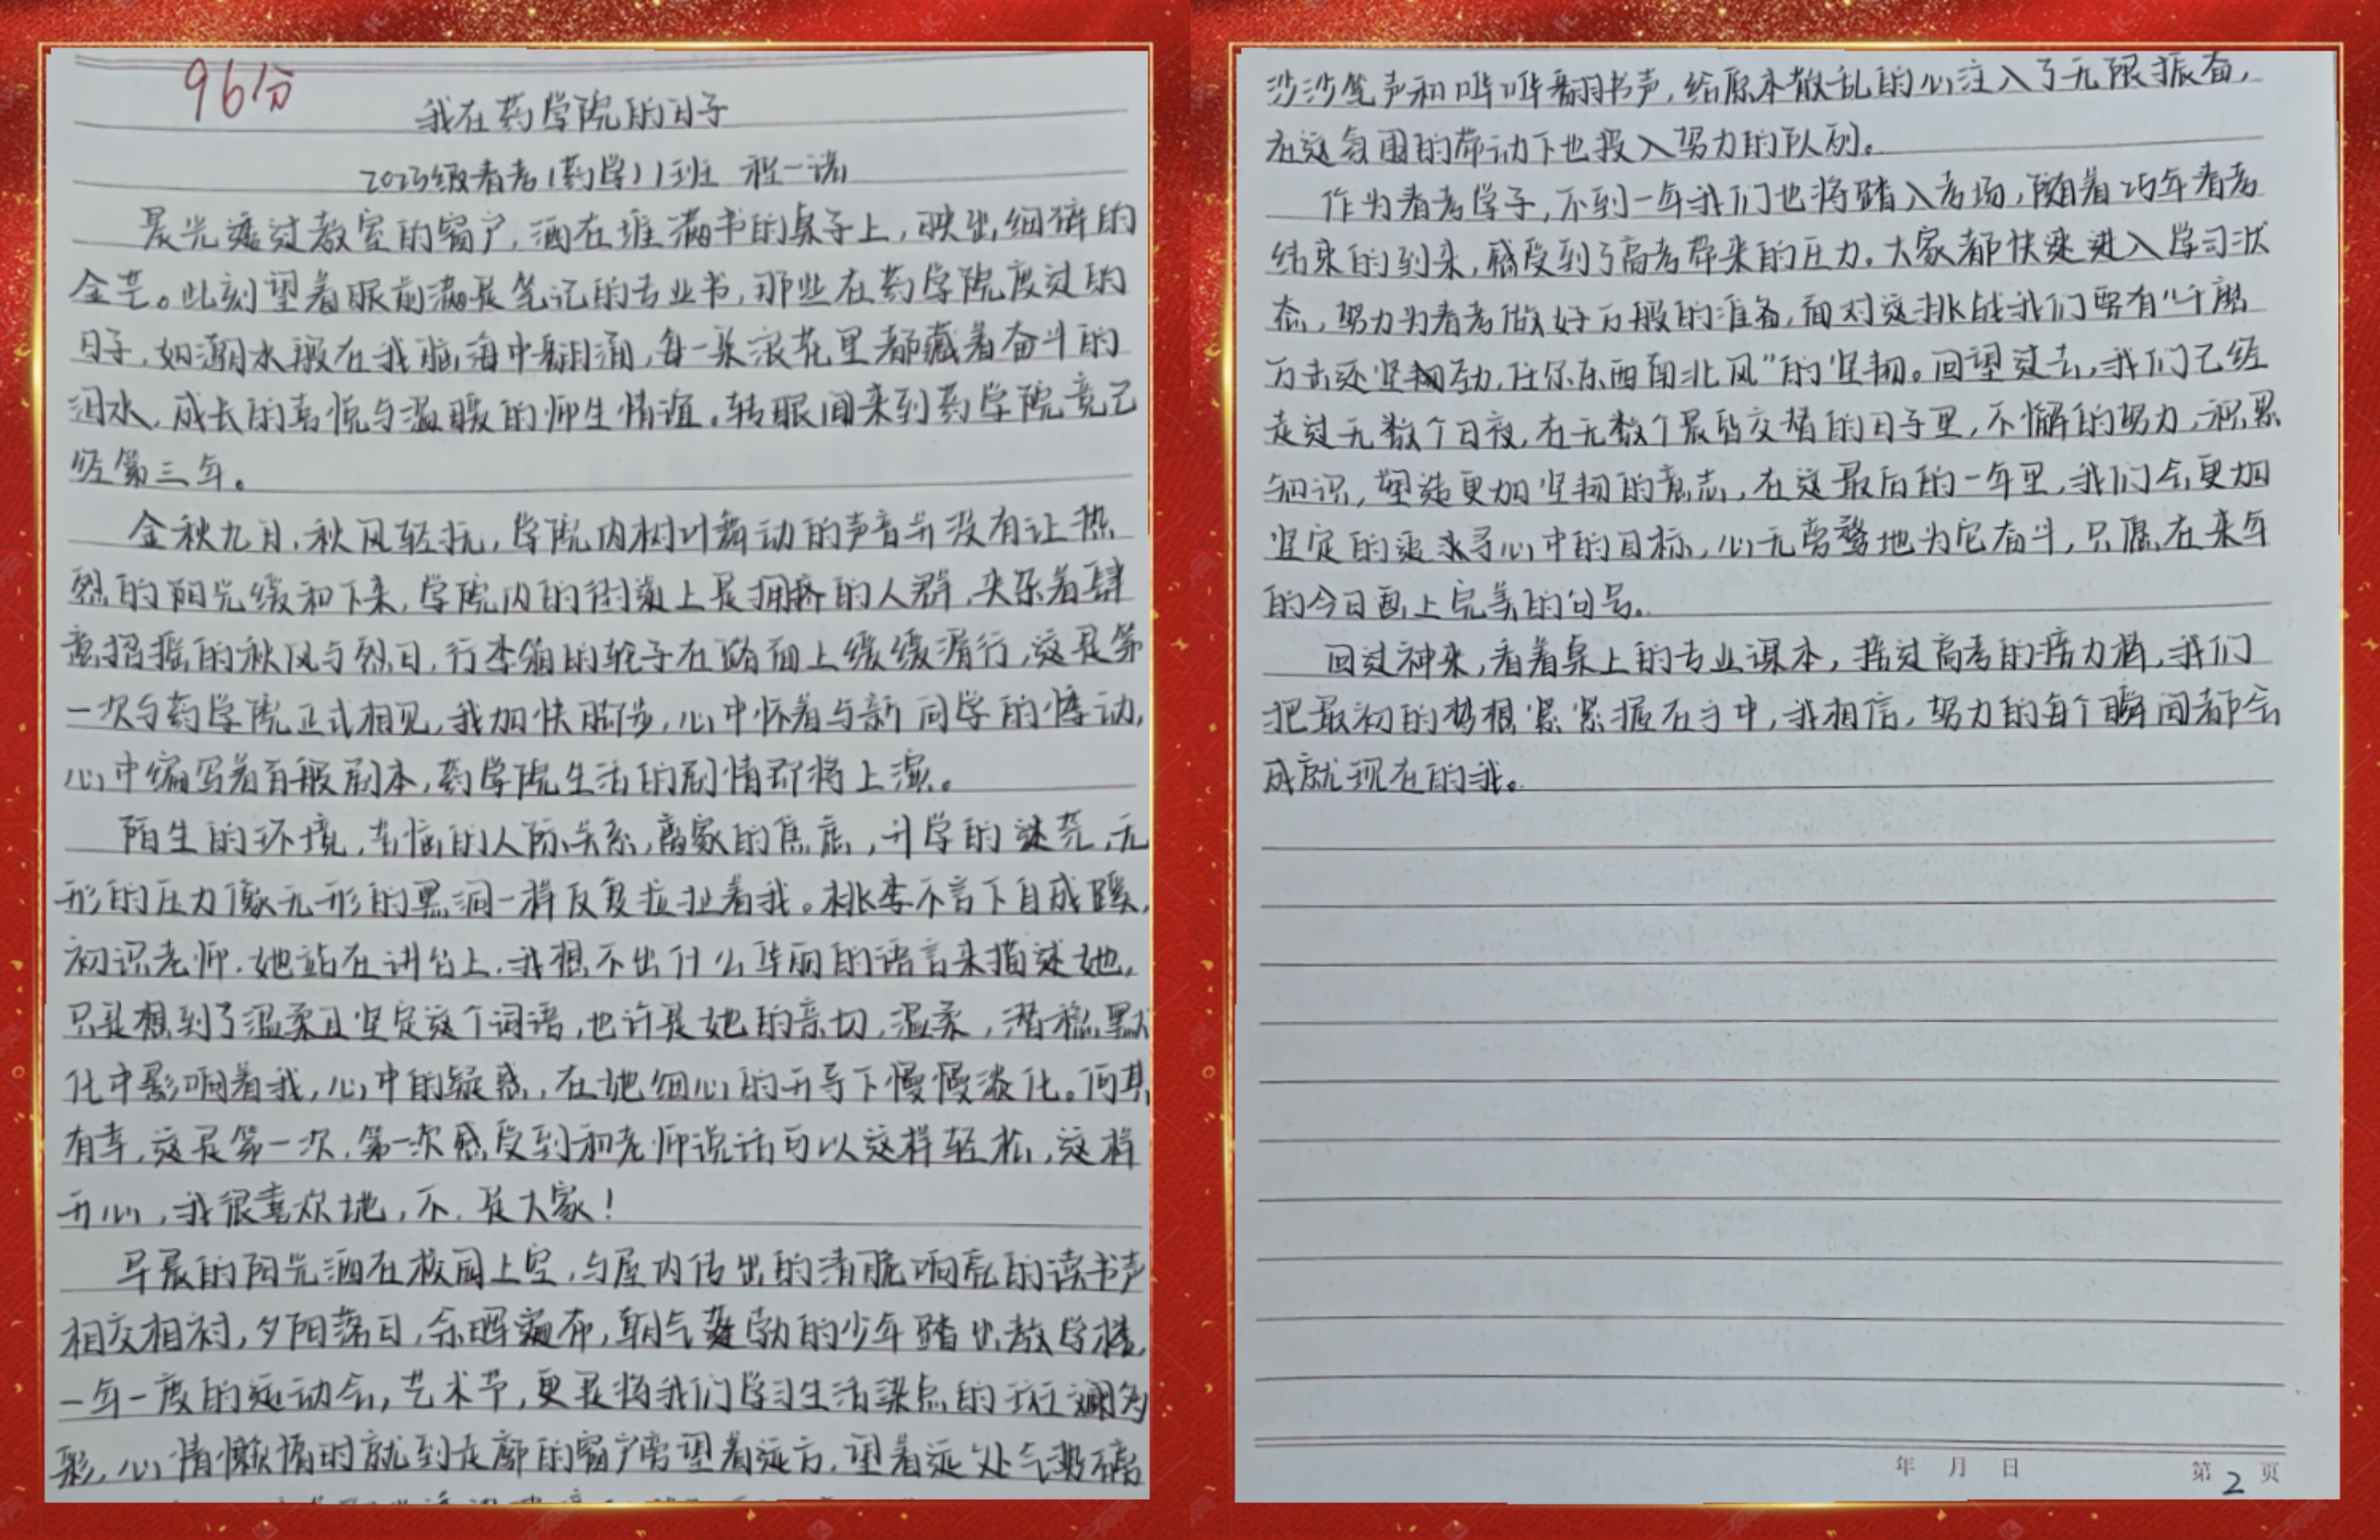 96分
我在药学院的日子
2023级春考(药学)1班 程一诺
晨光透过教室的窗户,洒在堆满书的桌子上,映出细碎的
金芒。此刻望着眼前满是笔记的专业书,那些在药学院度过的
日子,如潮水般在我脑海中翻涌,每一朵浪花里都藏着奋斗的
泪水,成长的喜悦与温暖的师生情谊。转眼间来到药学院竟已
经第三年。
金秋九月,秋风轻抚,学院内树叶舞动的声音并没有让热
烈的阳光缓和下来,学院内的街道上是拥挤的人群,夹杂着肆
意招摇的秋风与烈日,行李箱的轮子在路面上缓缓滑行,这是第
一次与药学院正式相见,我加快脚步,心中怀着与新同学的悸动,
心中编写着百般剧本,药学院生活的剧情即将上演。
陌生的环境,苦恼的人际关系,离家的焦虑,升学的迷茫,无
形的压力像无形的黑洞一样反复拉扯着我。桃李不言下自成蹊,
初识老师,她站在讲台上,我想不出什么华丽的语言来描述她,
只是想到了温柔且坚定这个词语,也许是她的亲切,温柔,潜移默
化中影响着我,心中的疑惑,在她细心的开导下慢慢淡化。何其
有幸,这是第一次,第一次感受到和老师说话可以这样轻松,这样
开心,我很喜欢她,不,是大家!
早晨的阳光洒在校园上空,与屋内传出的清脆响亮的读书声
相交相衬,夕阳落日,余晖遍布,朝气蓬勃的少年踏出教学楼,
一年一度的运动会,艺术节,更是将我们学习生活染点的斑斓多
彩,心情懒惰时就到走廊的窗户旁望着远方,望着远处气势磅
沙沙笔声和哗哗翻书声,给原本散乱的心注入了无限振奋,
在这氛围的带动下也投入努力的队列。
作为春考学子,不到一年我们也将踏入考场,随着25年春考
结束的到来,感受到了高考带来的压力。大家都快速进入学习状
态,努力为春考做好万般的准备,面对这挑战我们要有“千磨
万击还坚韧劲,任尔东西南北风”的坚韧。回望过去,我们已经
走过无数个日夜,在无数个晨昏交替的日子里,不懈的努力,积累
知识,塑造更加坚韧的意志,在这最后的一年里,我们会更加
坚定的追求寻心中的目标,心无旁骛地为它奋斗,只愿在来年
的今日画上完美的句号。
回过神来,看着桌上的专业课本,接过高考的接力棒,我们
把最初的梦想紧紧握在手中,我相信,努力的每个瞬间都会
成就现在的我。
年 月 日
第 2 页